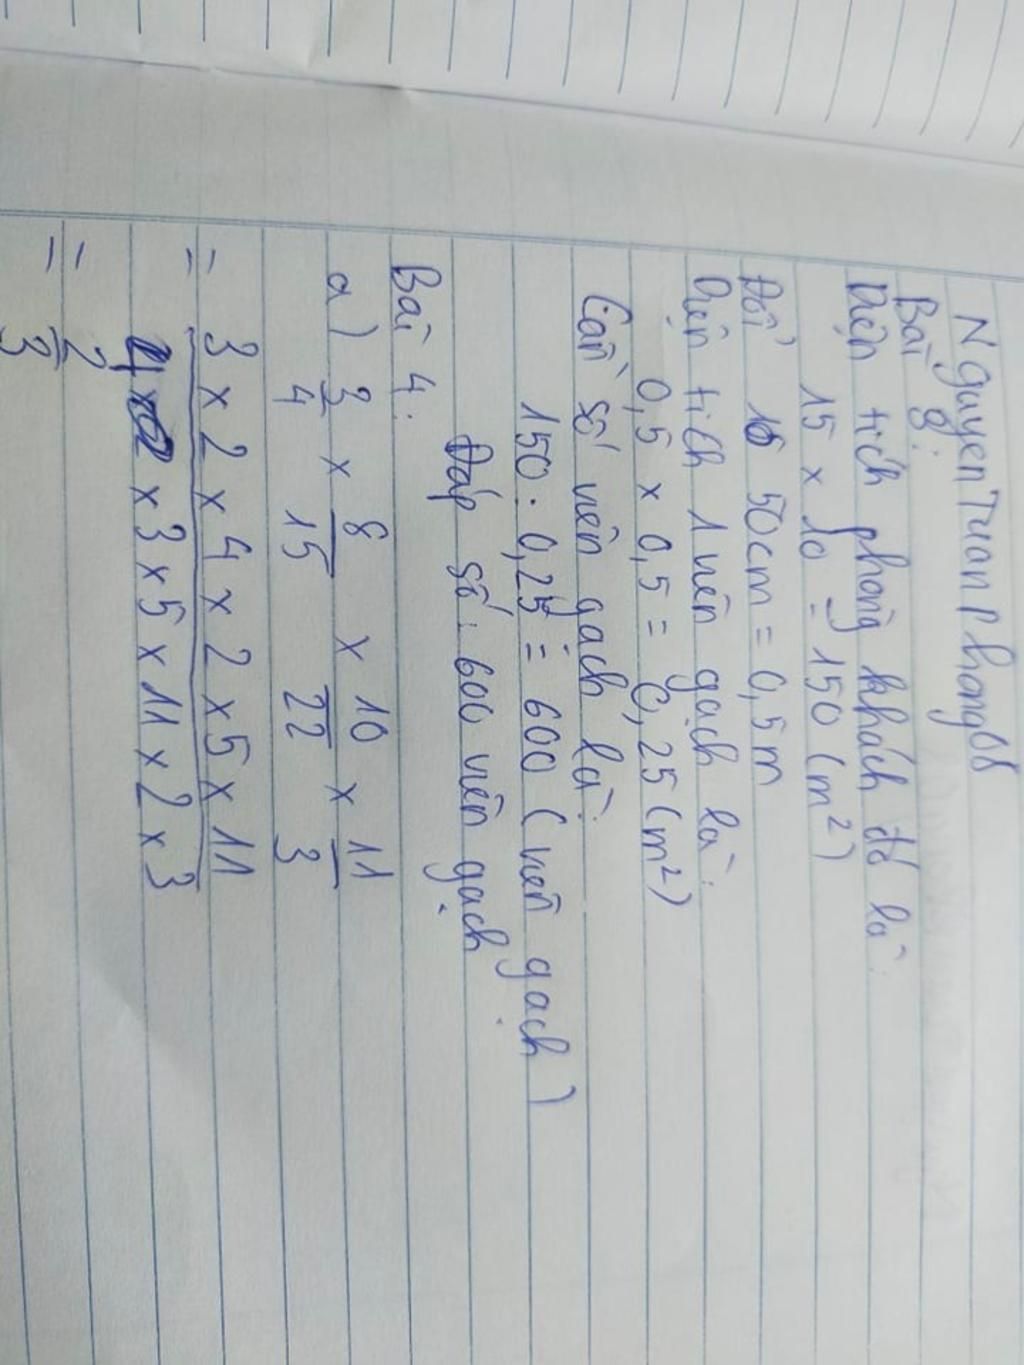 Nguyen Tuan Phong 08
Bài 8:
Diện tích phòng khách đó là:
15 x 10 = 150 (m²)
Đổi 50cm = 0,5m
Diện tích 1 viên gạch là:
0,5 x 0,5 = 0,25 (m²)
Cần số viên gạch là:
150 : 0,25 = 600 (viên gạch)
Đáp số: 600 viên gạch.
Bài 4:
a) 3/4 x 8/15 x 10/22 x 11/3
= 3 x 2 x 4 x 2 x 5 x 11
4 x 3 x 5 x 11 x 2 x 3
= 2
= 3